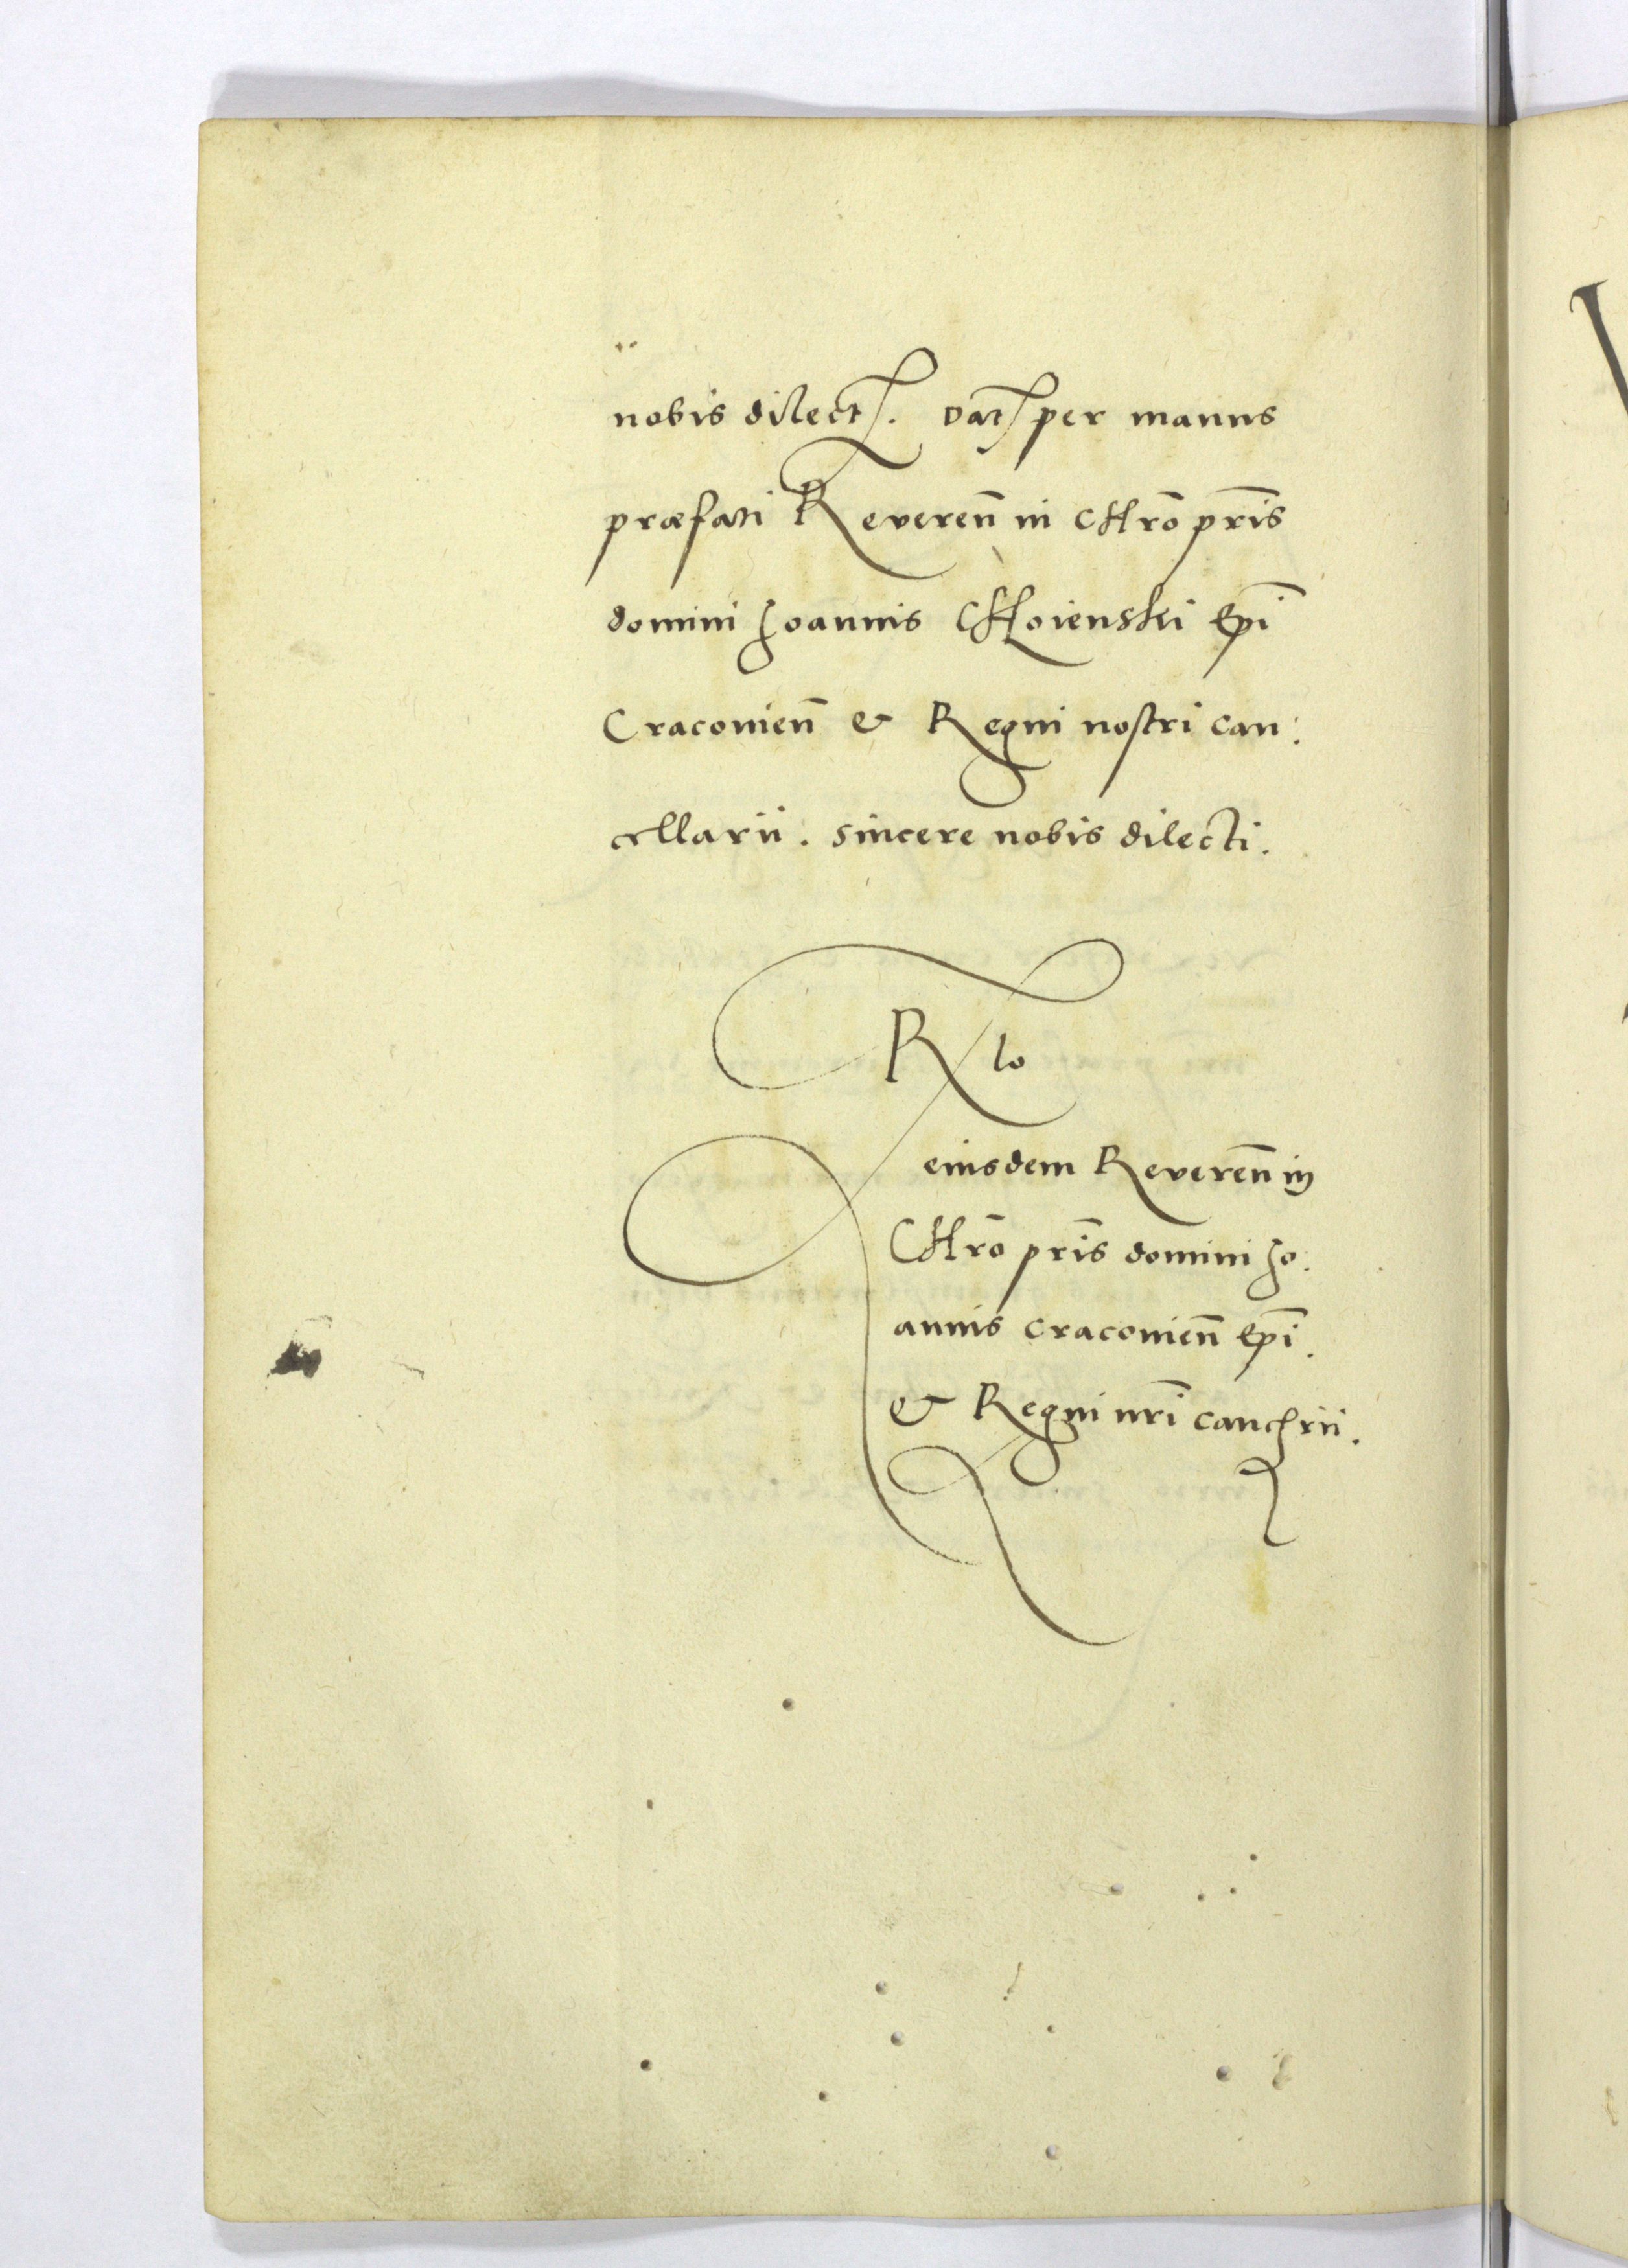 nobis dilect. Dat per manus
præfati Reveren̄ in chrō prīs
domini Joannis Choienski ep̄i
Cracovien̄ & Regni nostri can:
cellarii. sincere nobis dilecti.
R lo
eiusdem Reveren̄ in
Chrō prīs domini Jo:
annis cracovien̄ ep̄i.
& Regni nr̄i canclrii.